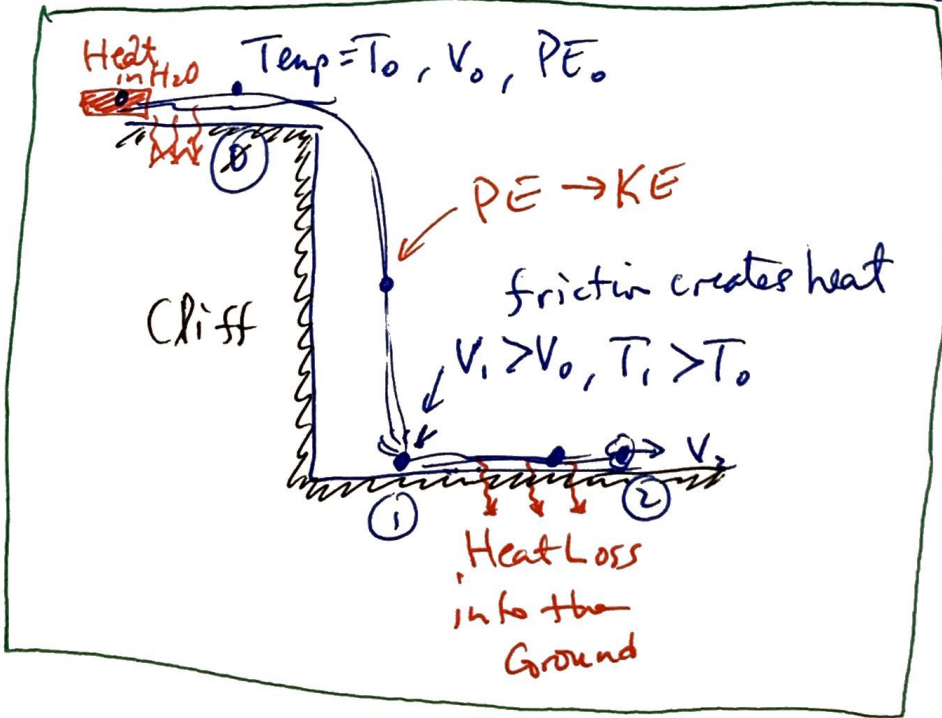 Heat
in H2O
Temp=T0, V0, PE0
0
PE → KE
Cliff
friction creates heat
V1 > V0, T1 > T0
V2
1
2
Heat Loss
into the
Ground